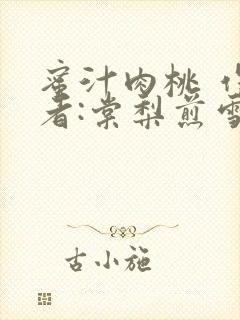 蜜汁肉桃 作
者:棠梨煎雪
古小施